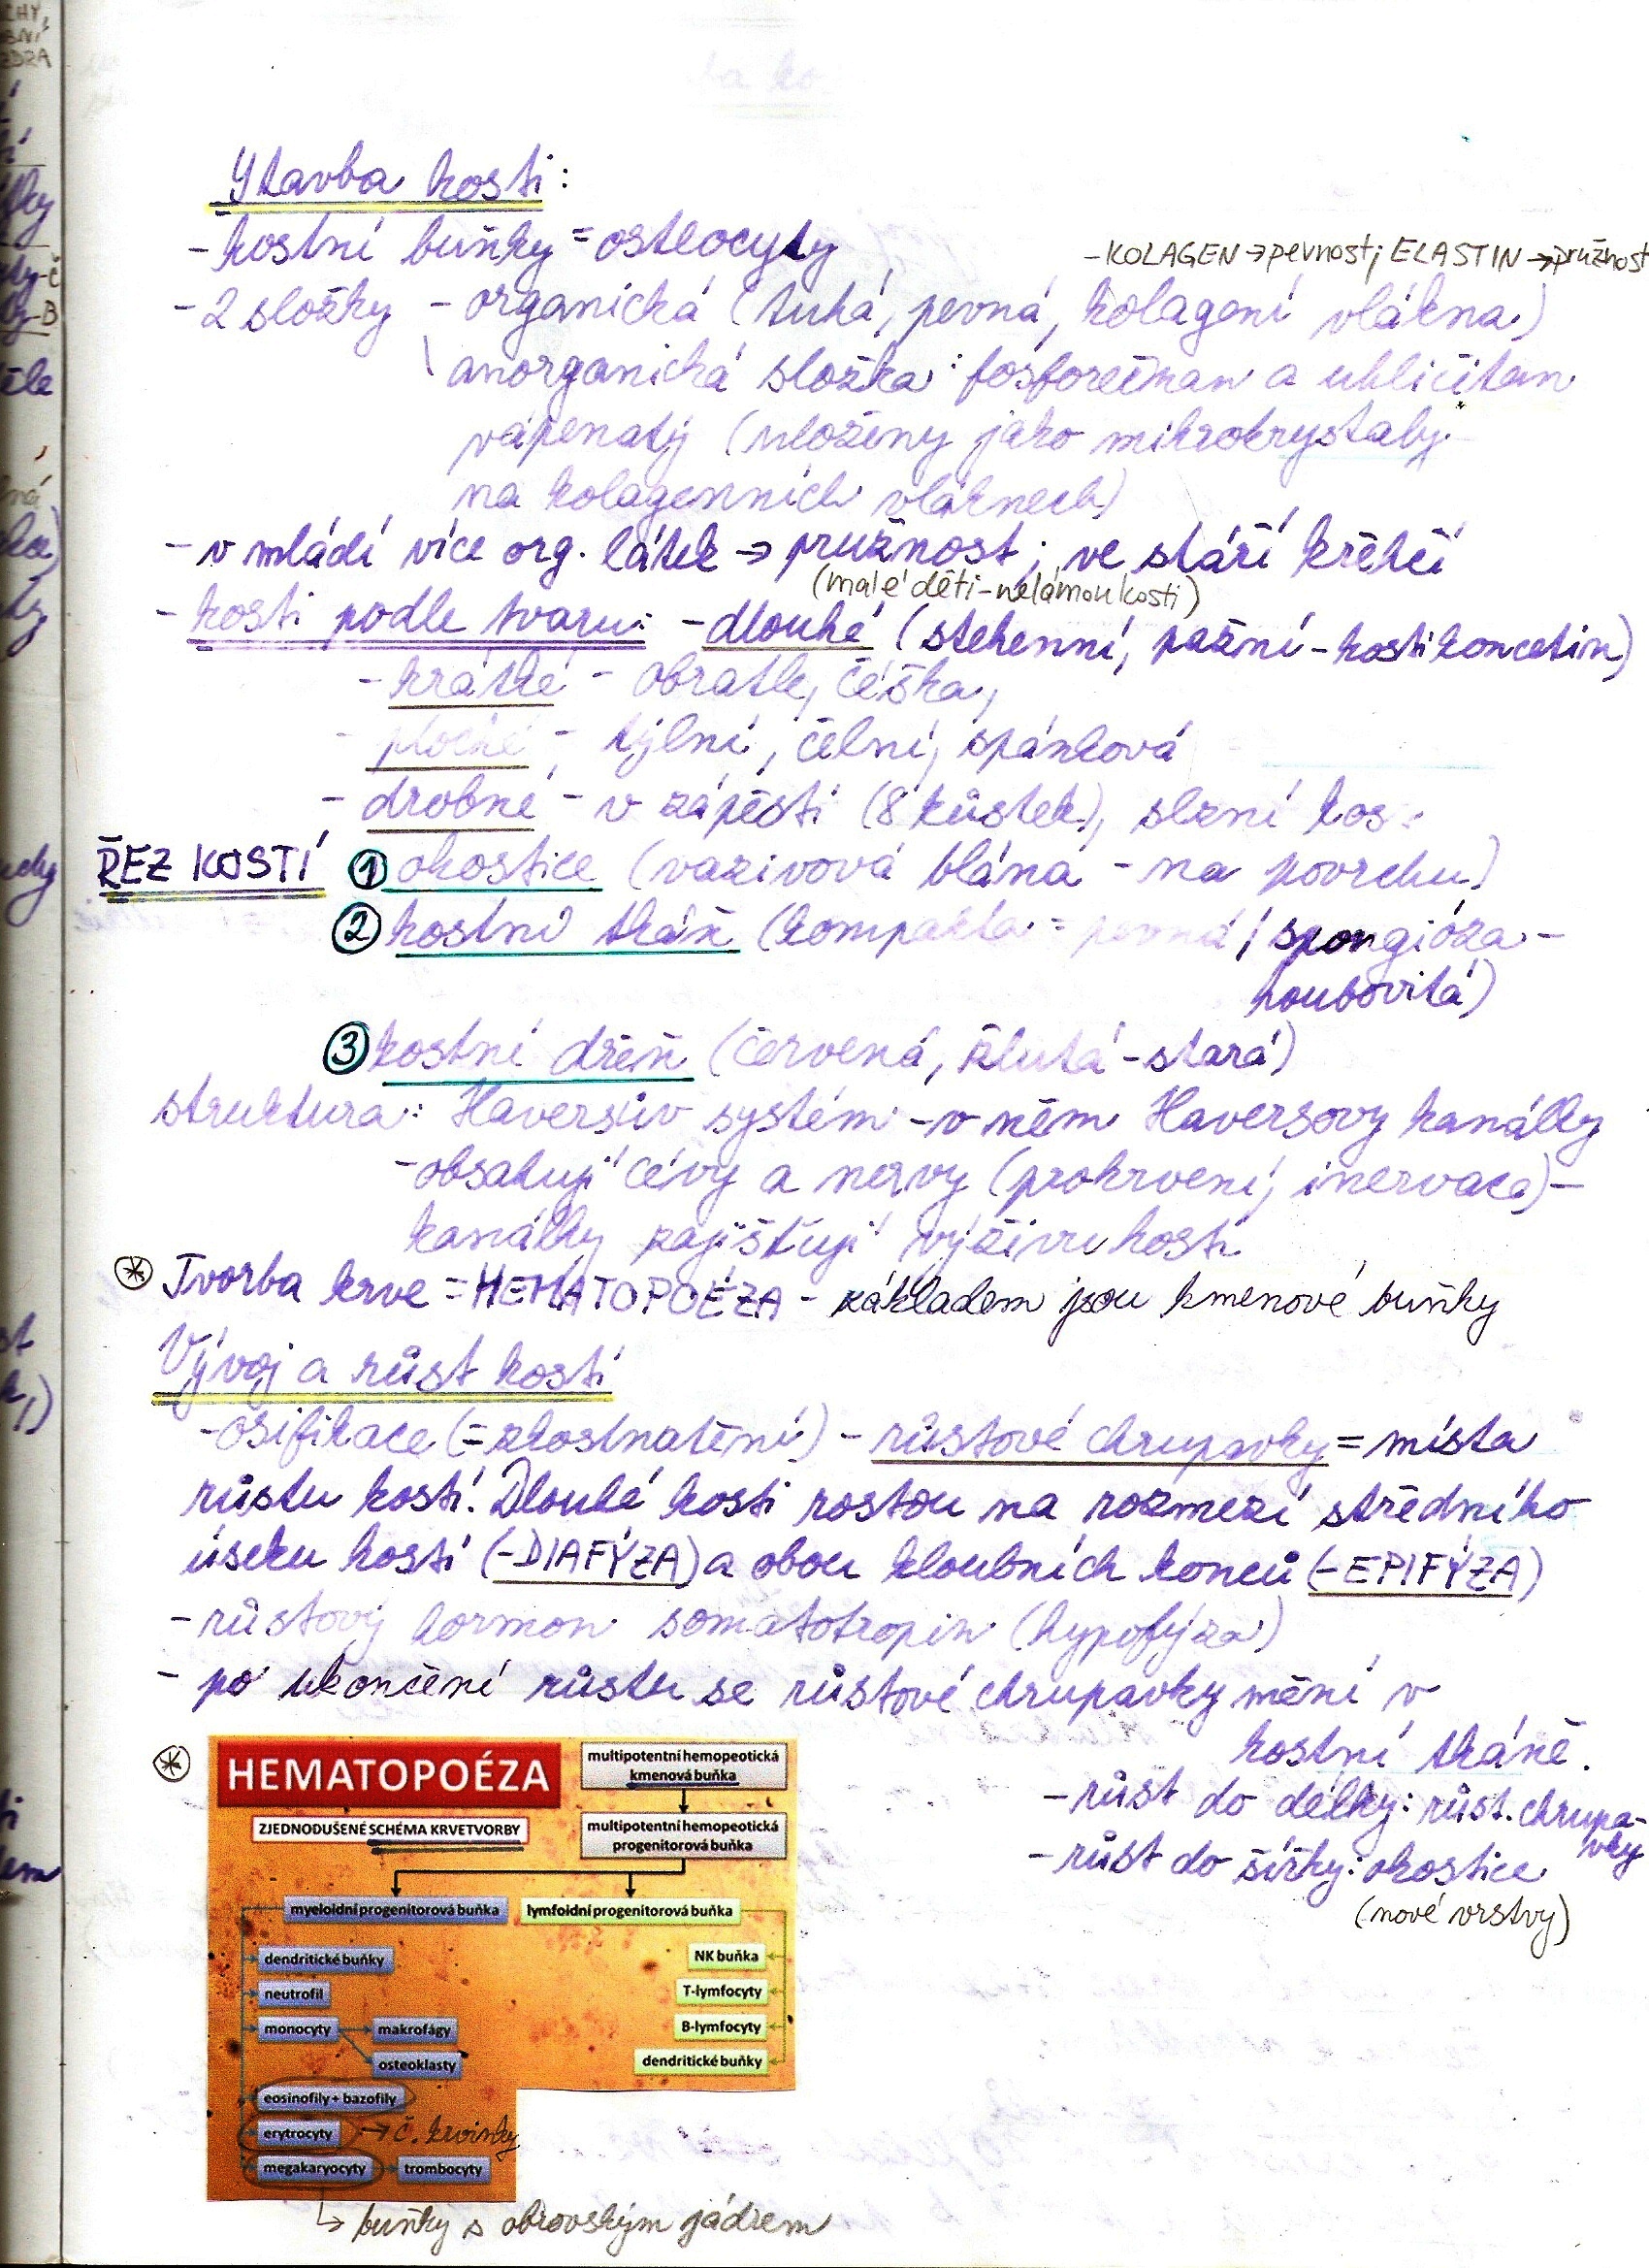 Stavba kosti:
- kostní buňky = osteocyty
- KOLAGEN → pevnost; ELASTIN → pružnost
- 2 složky - organická (tuhá, pevná, kolagení vlákna)
anorganická složka: fosforečnan a uhličitan
vápenatý (uloženy jako mikrokrystaly
na kolagenních vláknech)
- v mládí více org. látek → pružnost; ve stáří křehčí
(malé děti - nelámou kosti)
- kosti podle tvaru: - dlouhé (stehenní, pažní - kosti končetin)
- krátké - obratle, čéška,
- ploché - týlní, čelní, spánková
- drobné - v zápěstí (8 kůstek), slzní kos
ŘEZ KOSTÍ ① okostice (vazivová blána - na povrchu)
② kostní tkáň (kompakta = pevná / spongióza -
houbovitá)
③ kostní dřeň (červená, žlutá - stará)
struktura: Haversův systém - v něm Haversovy kanálky
- obsahují cévy a nervy (prokrvení, inervace) -
kanálky zajišťují výživu kosti
* Tvorba krve = HEMATOPOÉZA - základem jsou kmenové buňky
Vývoj a růst kostí
- osifikace (= zkostnatění) - růstové chrupavky = místa
růstu kostí. Dlouhé kosti rostou na rozmezí středního
úseku kostí (- DIAFÝZA) a obou kloubních konců (- EPIFÝZA)
- růstový hormon somatotropin (hypofýza)
- po ukončení růstu se růstové chrupavky mění v
kostní tkáně.
- růst do délky: růst. chrupa-
vky
- růst do šířky: okostice
(nové vrstvy)
*
HEMATOPOÉZA
ZJEDNODUŠENÉ SCHÉMA KRVETVORBY
multipotentní hemopeotická
kmenová buňka
multipotentní hemopeotická
progenitorová buňka
myeloidní progenitorová buňka
lymfoidní progenitorová buňka
dendritické buňky
neutrofil
monocyty
makrofágy
osteoklasty
eosinofily + bazofily
erytrocyty → č. krvinky
megakaryocyty
trombocyty
NK buňka
T-lymfocyty
B-lymfocyty
dendritické buňky
↳ buňky s obrovským jádrem